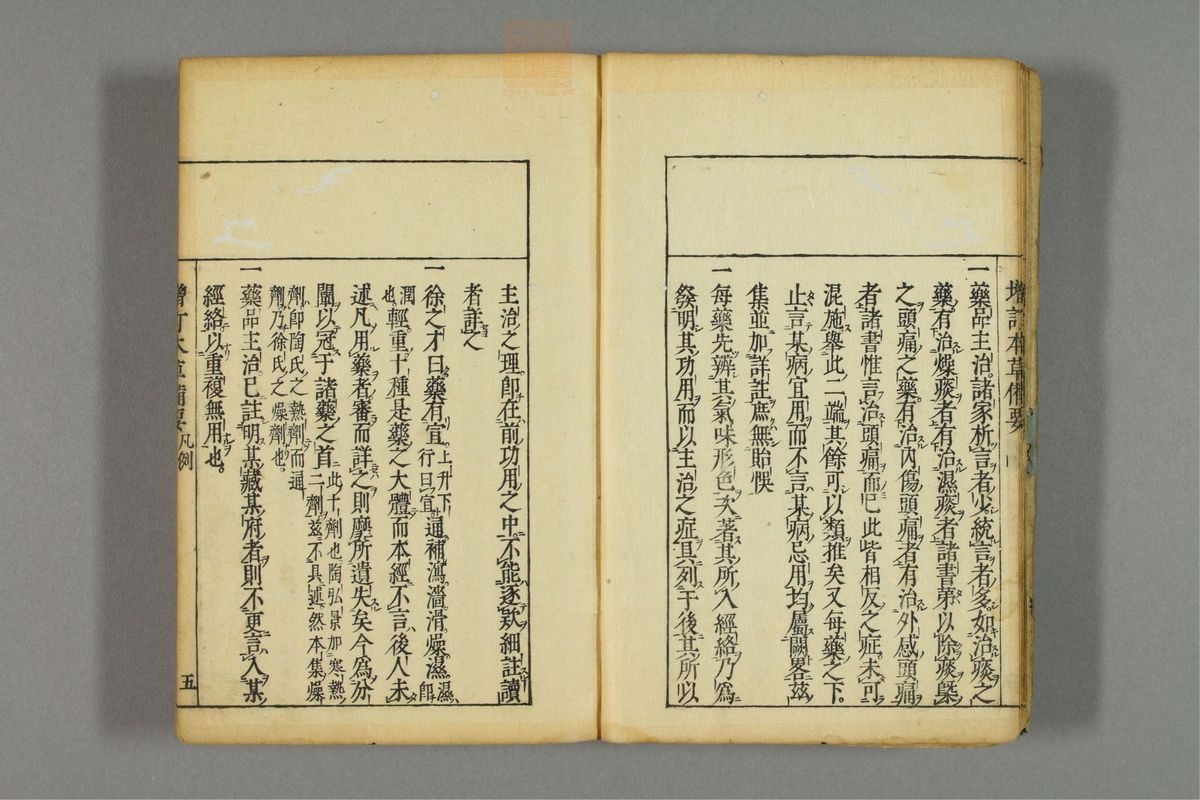 增訂本草備要
一藥品主治諸家析言者少統言者多如治痰之
藥有治燥痰者有治濕痰者諸書第以除痰槩
之頭痛之藥有治內傷頭痛者有治外感頭痛
者諸書惟言治頭痛而已此皆相反之症未可
混施舉此二端其餘可以類推矣又每藥之下
止言某病宜用而不言某病忌用均屬闕畧茲
集並加詳註庶無貽悞
一每藥先辨其氣味形色次著其所入經絡乃爲
發明其功用而以主治之症具列于後其所以
主治之理卽在前功用之中不能逐款細註讀
者詳之
一徐之才曰藥有宣上升下行曰宣通補瀉濇滑燥濕濕卽
潤也輕重十種是藥之大體而本經不言後人未
述凡用藥者審而詳之則靡所遺失矣今爲分
闡以冠于諸藥之首此十劑也陶弘景加寒熱
二劑茲不具述然本集燥
劑卽陶氏之熱劑而通
劑乃徐氏之燥劑也
一藥品主治已註明某藏某府者則不更言入某
經絡以重複無用也
增訂本草備要 凡例 五